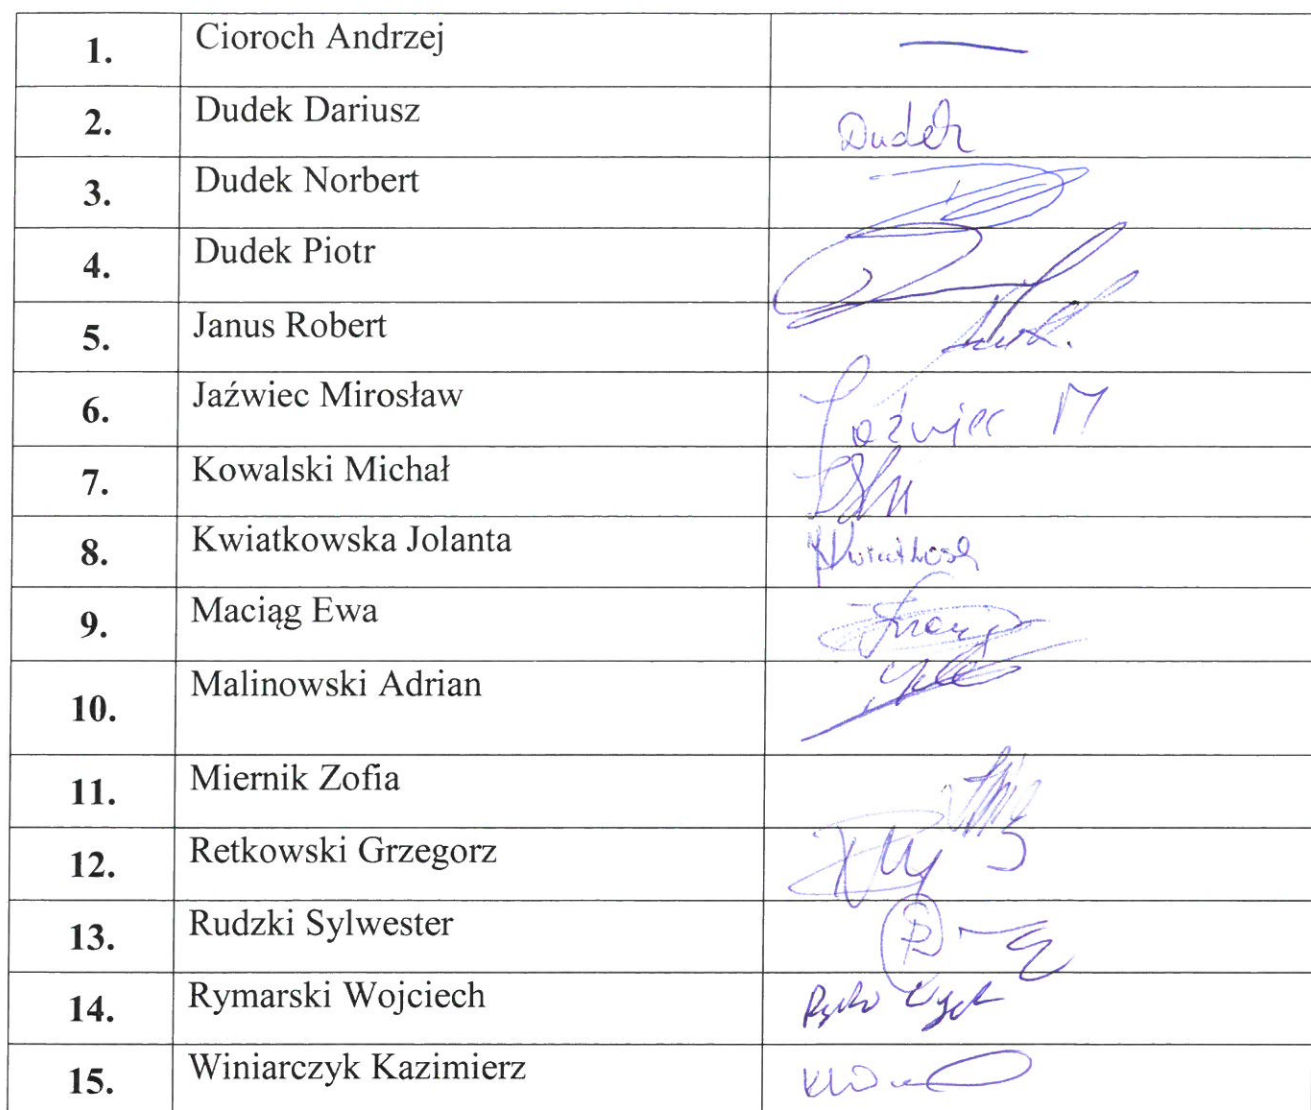 1. Cioroch Andrzej —
2. Dudek Dariusz Dudek
3. Dudek Norbert
4. Dudek Piotr
5. Janus Robert
6. Jaźwiec Mirosław Jaźwiec M
7. Kowalski Michał
8. Kwiatkowska Jolanta
9. Maciąg Ewa
10. Malinowski Adrian
11. Miernik Zofia
12. Retkowski Grzegorz
13. Rudzki Sylwester
14. Rymarski Wojciech
15. Winiarczyk Kazimierz